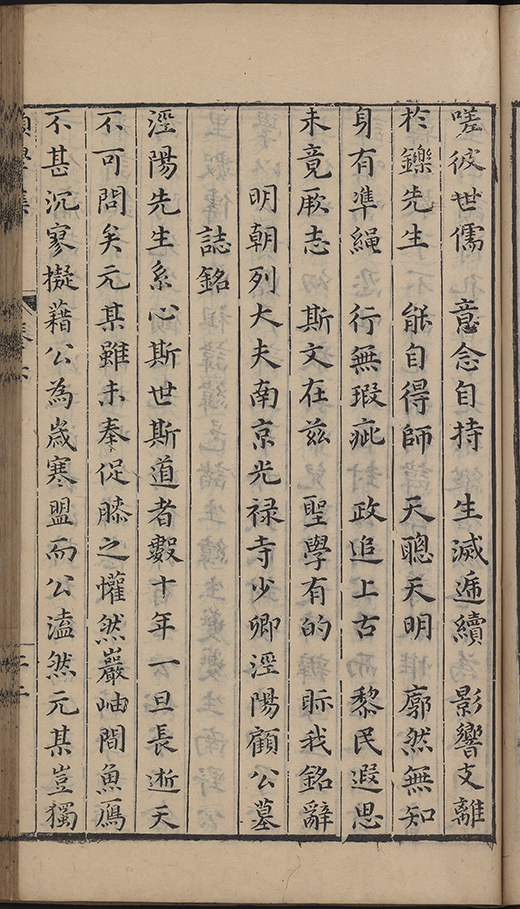 嗟彼世儒　意念自持　生滅遞續　為影響支離
於鑠先生　不能自得師　天聰天明　惟廓然無知
身有準繩　行無瑕疵　政追上古　而黎民遐思
未竟厥志　斯文在茲　聖學有的　眎我銘辭
明朝列大夫南京光禄寺少卿涇陽顧公墓
誌銘
涇陽先生系心斯世斯道者數十年一旦長逝天
不可問矣元某雖未奉促膝之懽然巖岫間魚鴈
不甚沉寥擬藉公為歲寒盟而公溘然元某豈獨